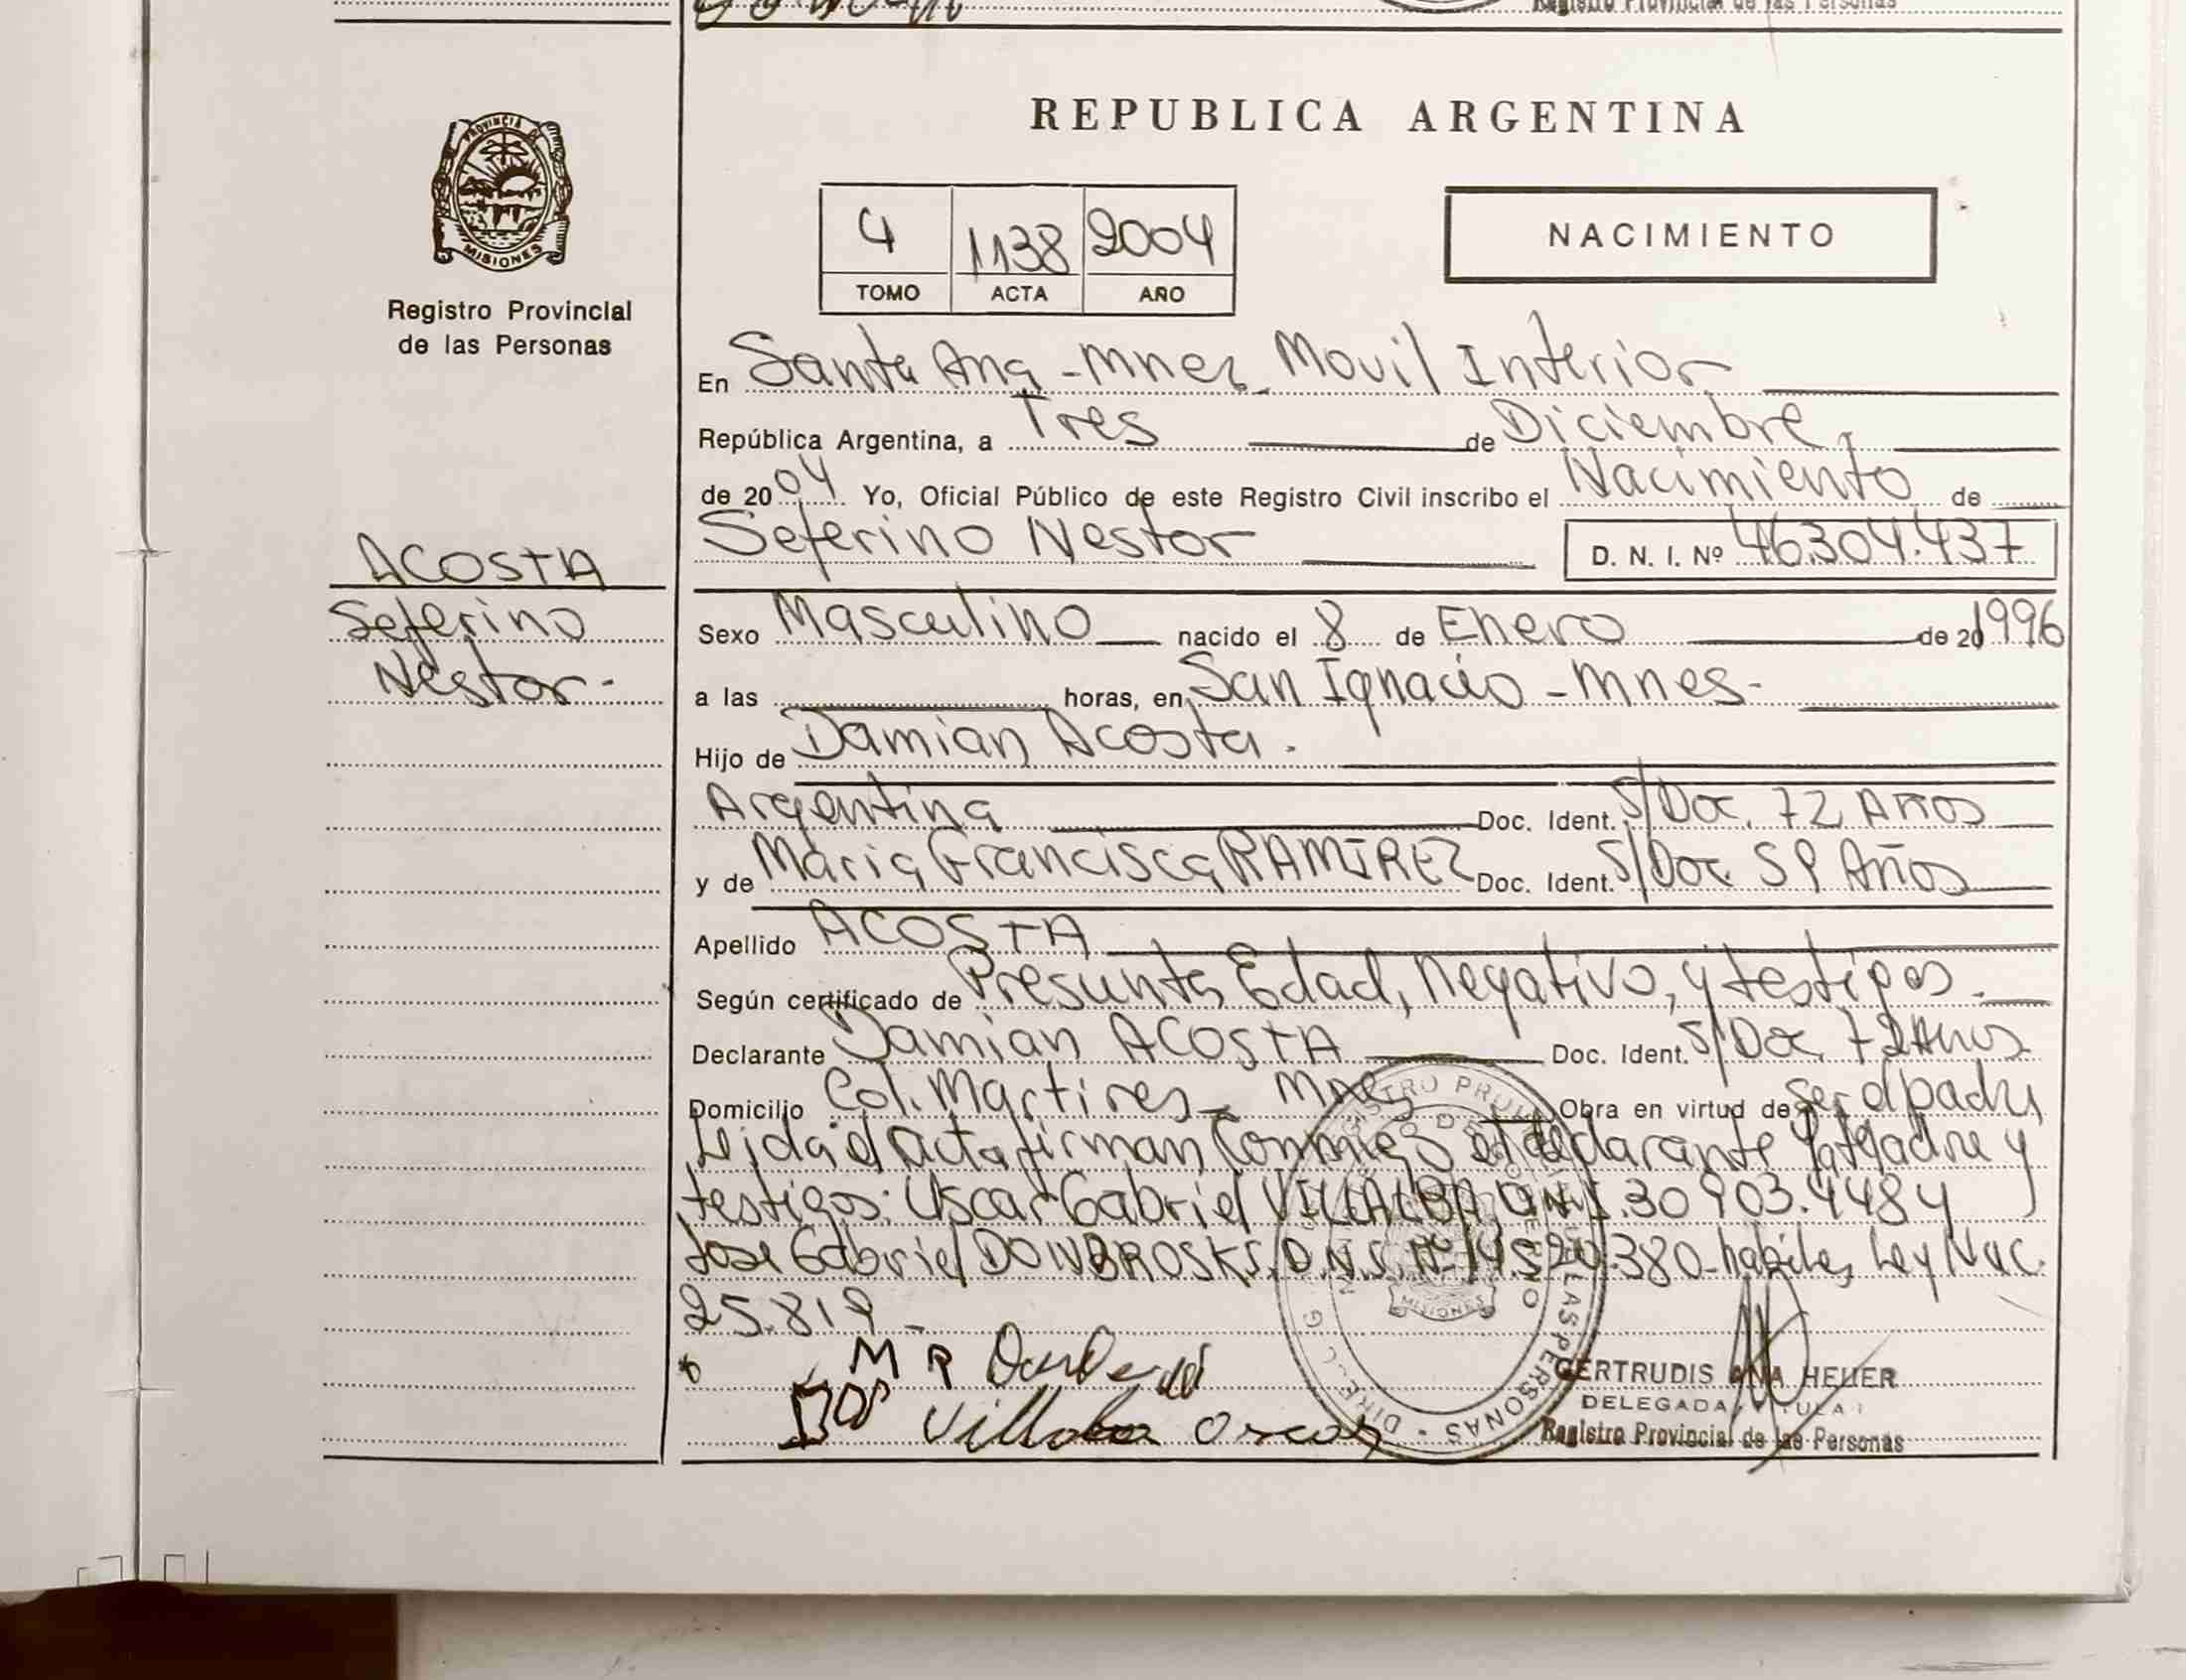 Registro Provincial de las Personas
PROVINCIA DE
MISIONES
Registro Provincial
de las Personas
ACOSTA
Seferino
Nestor.
REPUBLICA ARGENTINA
4 1138 2004
TOMO ACTA AÑO
NACIMIENTO
En Santa Ana - Mnes. Movil Interior
República Argentina, a Tres de Diciembre
de 2004 Yo, Oficial Público de este Registro Civil inscribo el Nacimiento de
Seferino Nestor D. N. I. Nº 46.304.437
Sexo Masculino nacido el 8 de Enero de 20 1996
a las horas, en San Ignacio - Mnes.
Hijo de Damian Acosta.
Argentina Doc. Ident. S/Doc. 72 Años
y de Maria Francisca RAMIREZ Doc. Ident. S/Doc 59 Años
Apellido ACOSTA
Según certificado de Presunta Edad, Negativo, y testigos.
Declarante Damian ACOSTA Doc. Ident. S/Doc. 72 Años
Domicilio Col. Martires - Mnes Obra en virtud de ser el padre
Leida el acta firman conmigo el declarante y la Madre y
testigos: Oscar Gabriel VILLALBA D.N.I. 30 903.4484
Jose Gabriel DONBROSKI. D.N.I. Nº 14520.380 - habiles, Ley Nac.
25.819 -
M R
Villalba Oscar
GERTRUDIS ANA HELLER
DELEGADA TITULAR
Registro Provincial de las Personas
MISIONES